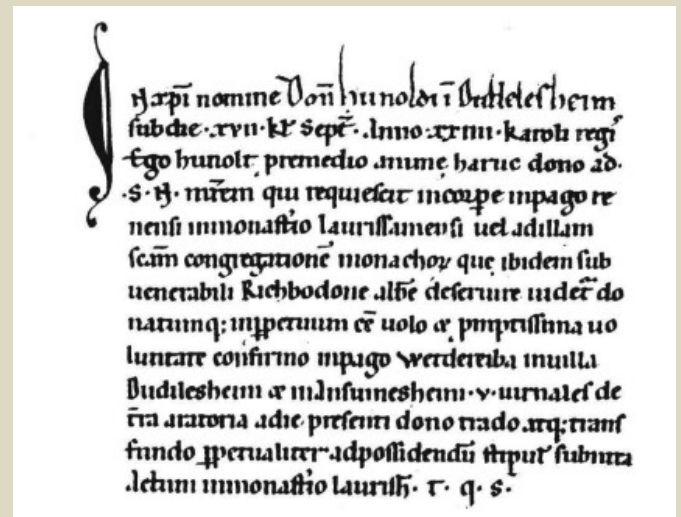 In xpī nomine Don̄ hunoldi ī Dudelesheim
sub die · xvii · kł Septē · Anno xxiiii · karoli regis
Ego hunolt premedio anime haruc dono ad ·
· S · N · mr̄em qui requiescit incorpe inpago re
nensi inmonastīo Laurissamensi uel adillam
scām congregationē monachoꝝ que ibidem sub
uenerabili Richbodone abbē deseruire uidet̄ do
natumq; inꝑpetuum eē uolo & pmptissima uo
luntate confirmo inpago Wettereiba inuilla
Dudilesheim & inInsuinesheim · v · iurnales de
t̄ra aratoria adie presenti dono trado atq; trans
fundo ꝑpetualiter adpossidendū stipul̄ subnixa
Actum inmonastīo Laurish̄ · T · q · s ·